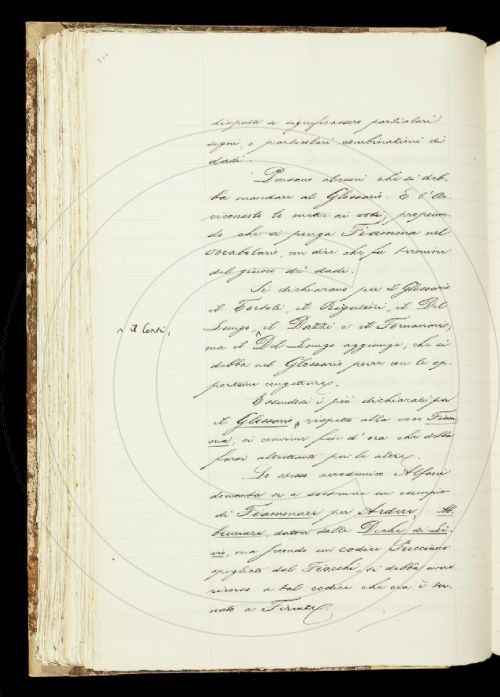 disputa a significassero particolari
segni, e particolari combinazioni di
dadi.
Pensano alcuni che si deb-
ba mandare al Glossario. E l'Ar-
ciconsolo lo mette ai voti, proponen-
do che si ponga Fiamma nel
Vocabolario, con dire che fu termine
del giuoco di dadi.
Si dichiarano per il Glossario
il Tortoli, il Rigutini, il Del
Lungo, il Dazzi e il Fornaciari;
^ il Conti,
ma il Del Lungo aggiunge, che si
debba nel Glossario porre con le op-
portune congetture.
Essendosi i più dichiarati per
il Glossario rispetto alla voce Fiam-
ma, si conviene fin d'ora che debba
farsi altrettanto per le altre.
Lo stesso accademico Alfani
domanda se a sostenere un esempio
di Fiammare per Ardere, Ab-
bruciare, dato dalla Deche di Li-
vio, ma secondo un codice Pucciano
spogliato dal Fiacchi, si debba avere
ricorso a tal codice che ora è tor-
nato a Firenze.